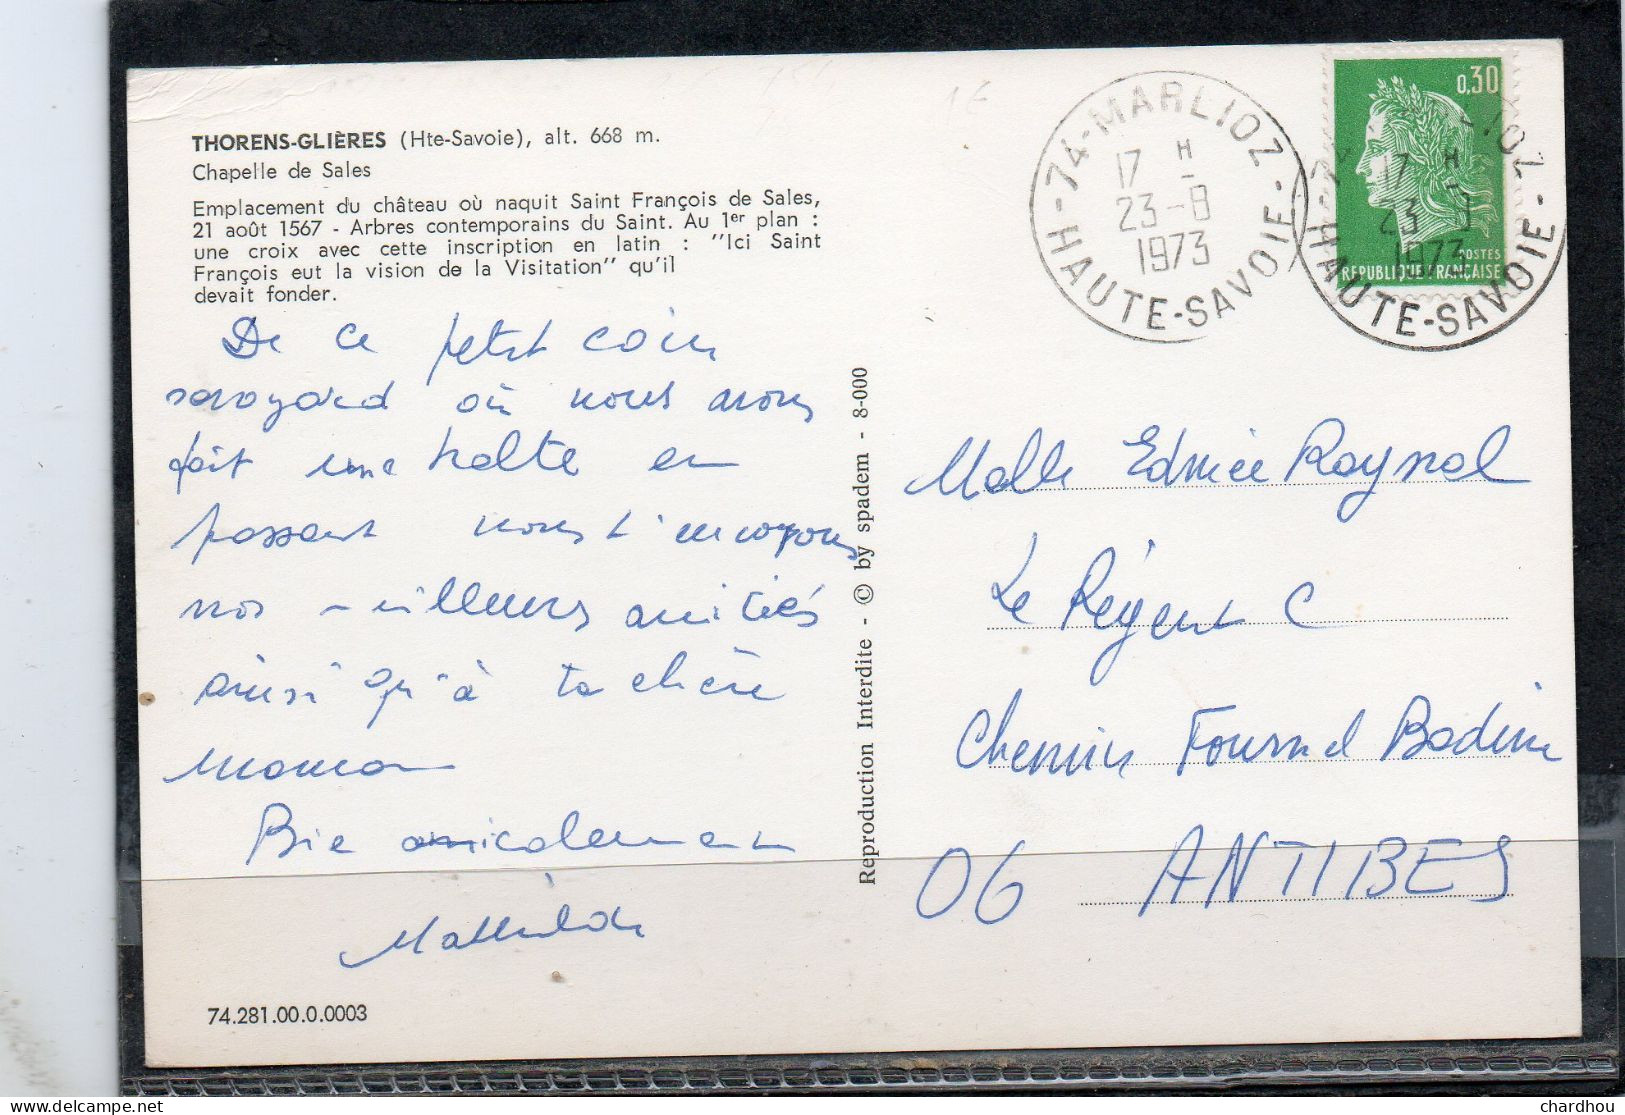 THORENS-GLIÈRES (Hte-Savoie), alt. 668 m.
Chapelle de Sales
Emplacement du château où naquit Saint François de Sales,
21 août 1567 - Arbres contemporains du Saint. Au 1er plan :
une croix avec cette inscription en latin : "Ici Saint
François eut la vision de la Visitation" qu'il
devait fonder.
De ce petit coin
savoyard où nous avons
fait une halte en
passant nous t'envoyons
nos meilleures amitiés
ainsi qu'à ta chère
maman
Bien amicalement
Mathilde
74.281.00.0.0003
Reproduction Interdite - © by spadem - 8-000
1E
74-MARLIOZ
17 H
23-8
1973
HAUTE-SAVOIE
0,30
POSTES
REPUBLIQUE FRANÇAISE
17 H
23
1973
HAUTE-SAVOIE
Melle Edmée Raynal
Le Régent C
Chemin Fournel Badine
06 ANTIBES
delcampe.net
chardhou